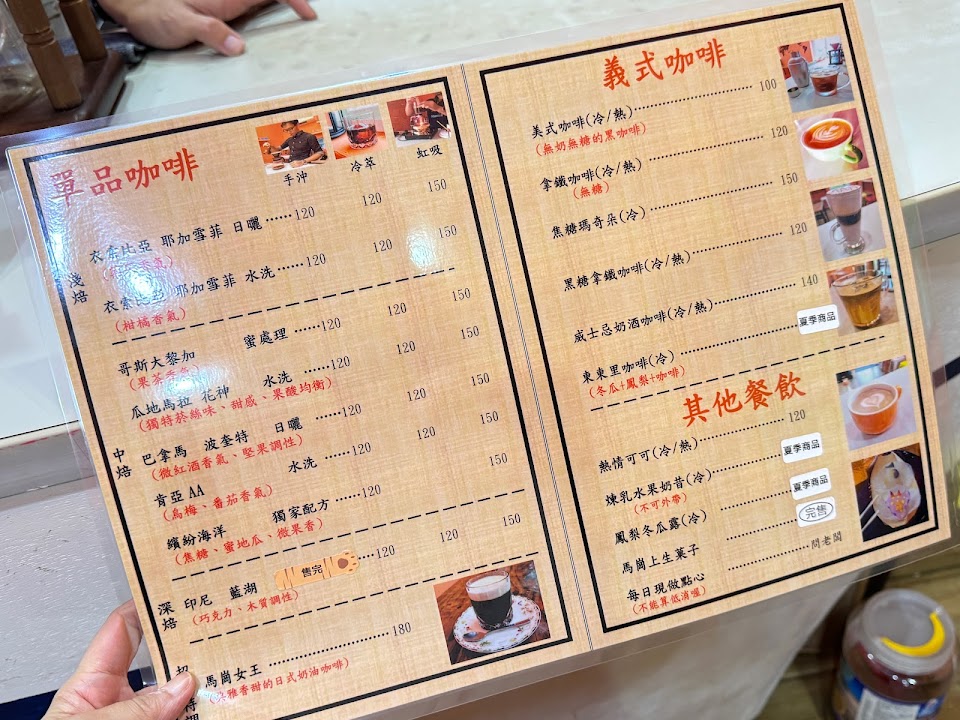 單品咖啡
手沖 冷萃 虹吸
淺焙
衣索比亞 耶加雪菲 日曬……120 120 150
衣索比亞 耶加雪菲 水洗……120 120 150
(柑橘香氣)
中焙
哥斯大黎加 蜜處理……120 120 150
(果茶香氣)
瓜地馬拉 花神 水洗……120 120 150
(獨特菸絲味、甜感、果酸均衡)
巴拿馬 波奎特 日曬……120 120 150
(微紅酒香氣、堅果調性)
肯亞AA 水洗……120 120 150
(烏梅、番茄香氣)
繽紛海洋 獨家配方……120 120 150
(焦糖、蜜地瓜、微果香)
深焙
印尼 藍湖 售完……120 120 150
(巧克力、木質調性)
特調
馬崗女王……180
雅香甜的日式奶油咖啡)
義式咖啡
美式咖啡(冷/熱)……100
(無奶無糖的黑咖啡)
拿鐵咖啡(冷/熱)……120
(無糖)
焦糖瑪奇朵(冷)……150
黑糖拿鐵咖啡(冷/熱)……120
威士忌奶酒咖啡(冷/熱)……140
東東里咖啡(冷)……夏季商品
(冬瓜+鳳梨+咖啡)
其他餐飲
熱情可可(冷/熱)……120
煉乳水果奶昔(冷)……夏季商品
(不可外帶)
鳳梨冬瓜露(冷)……夏季商品
馬崗上生菓子……完售
每日現做點心……問老闆
(不能算低消喔)